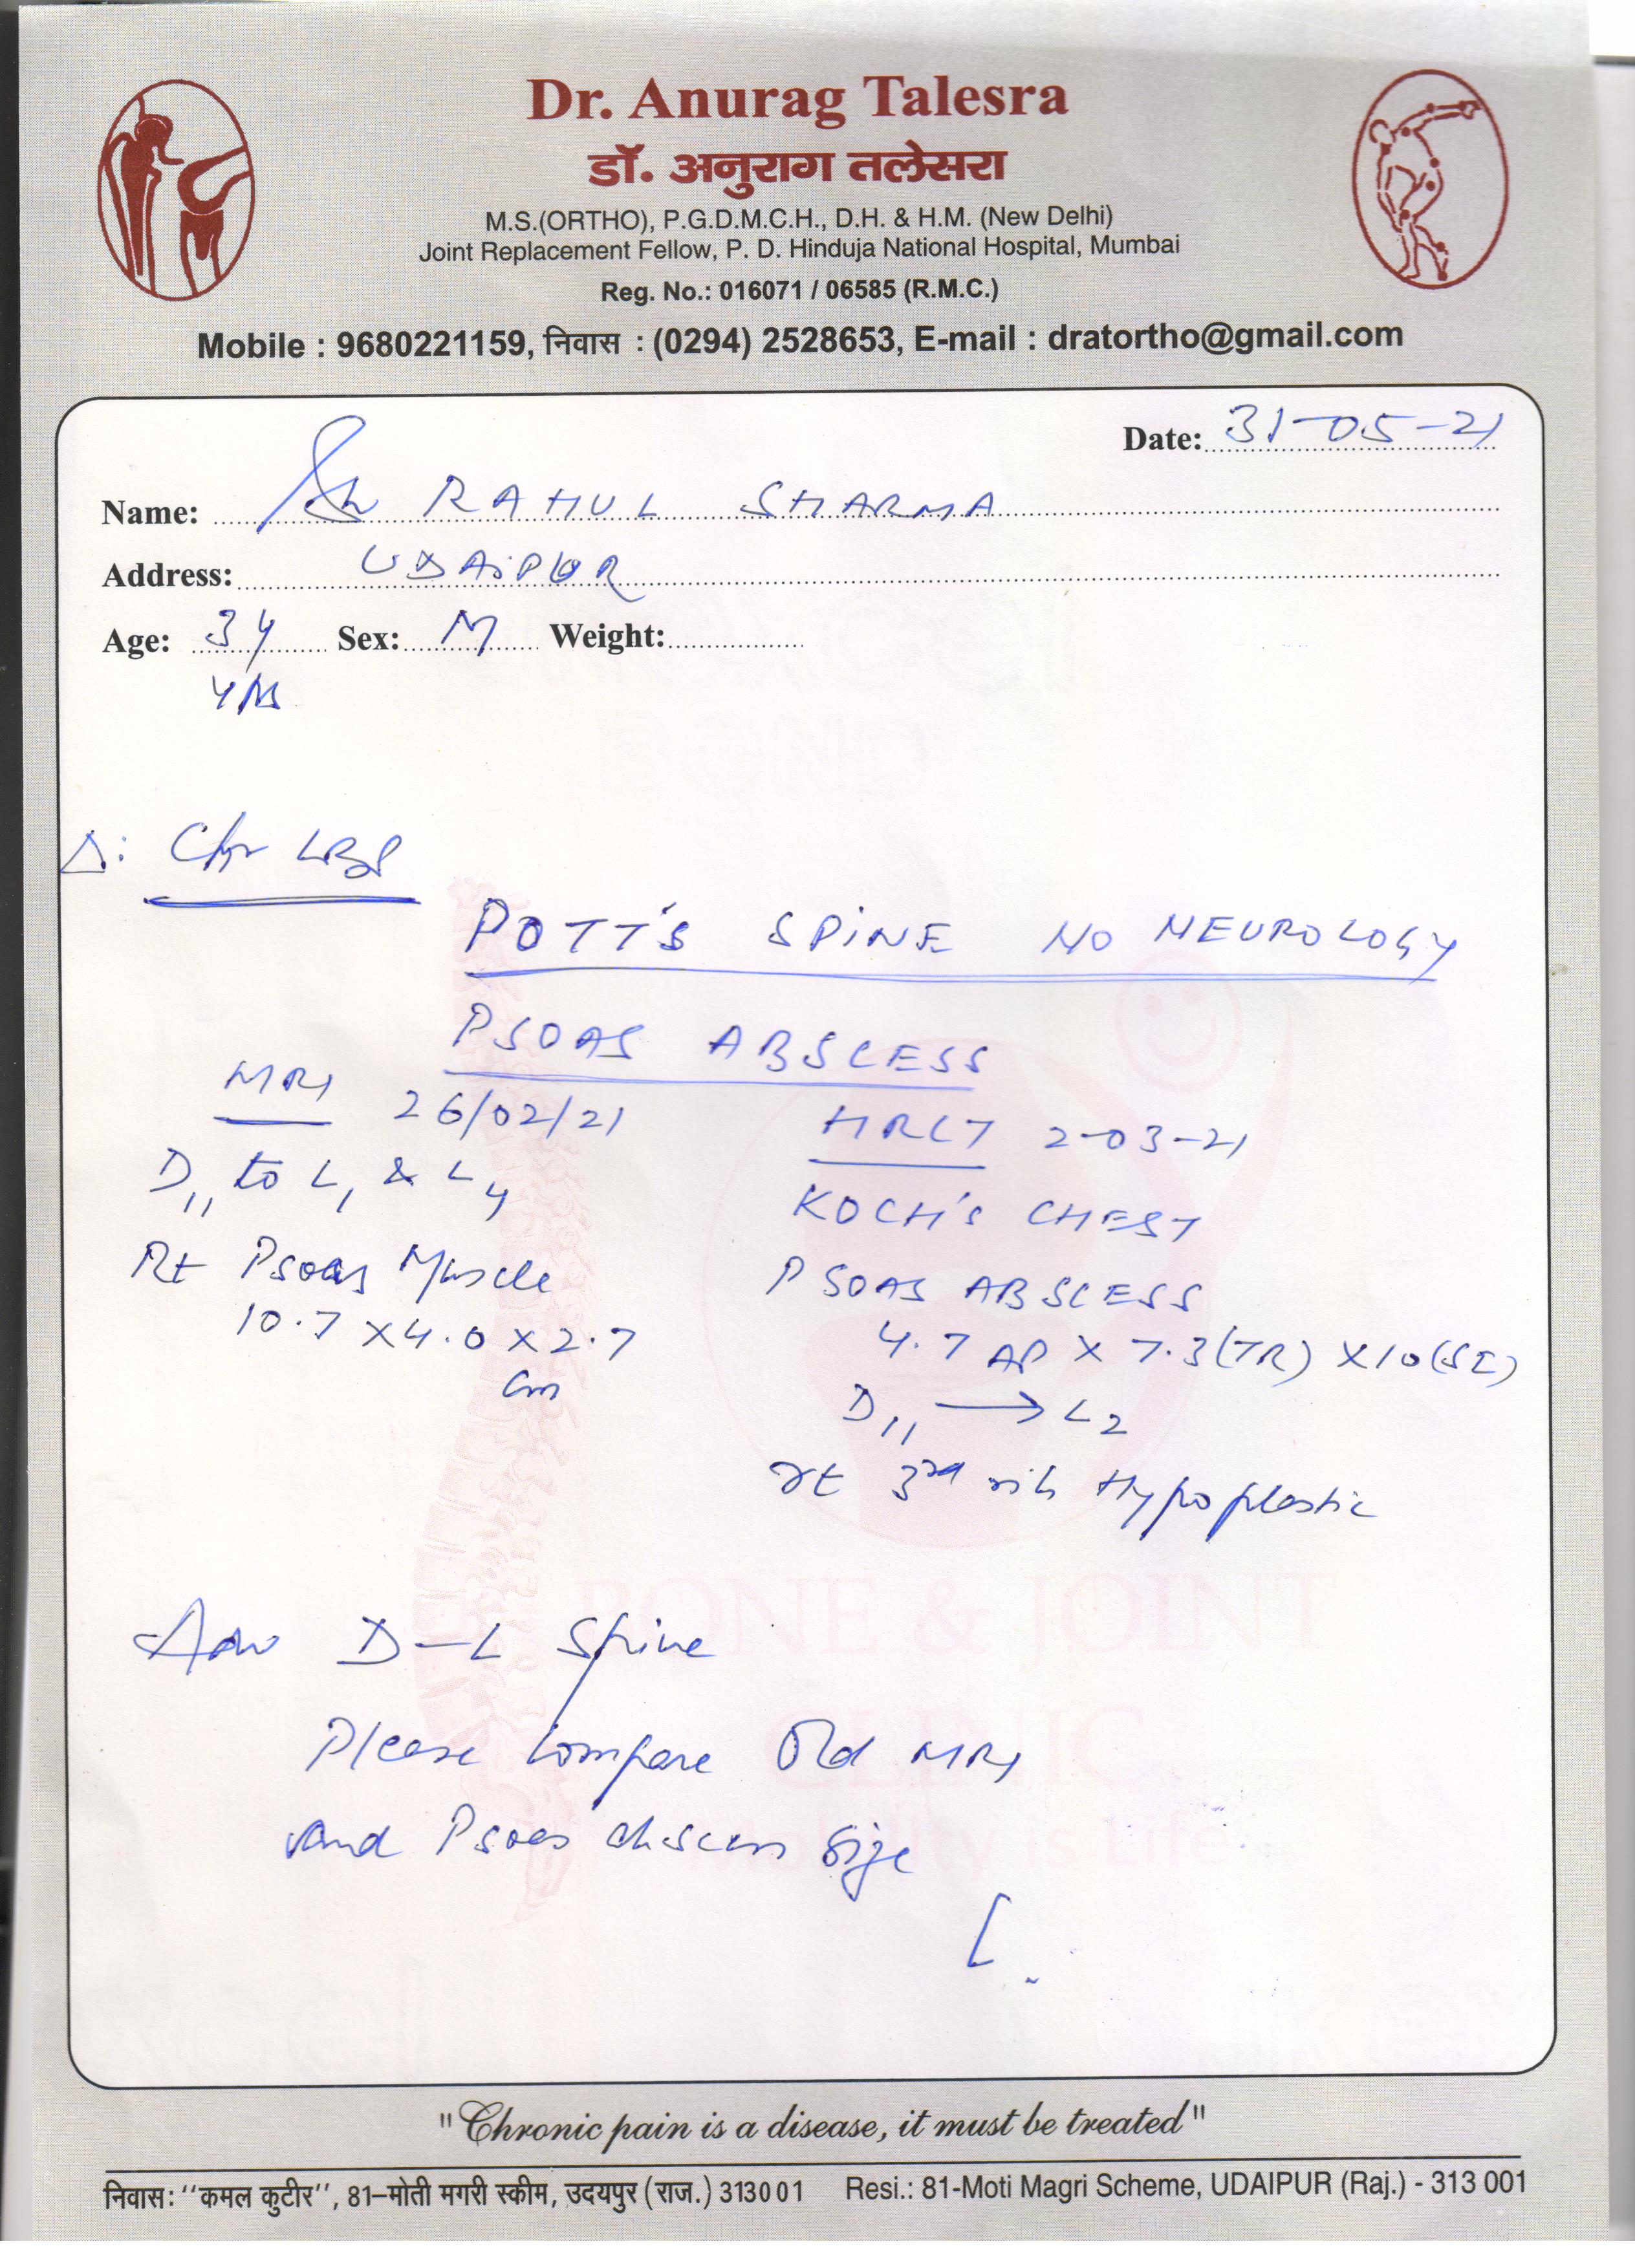 Dr. Anurag Talesra
डॉ. अनुराग तलेसरा
M.S.(ORTHO), P.G.D.M.C.H., D.H. & H.M. (New Delhi)
Joint Replacement Fellow, P. D. Hinduja National Hospital, Mumbai
Reg. No.: 016071 / 06585 (R.M.C.)
Mobile : 9680221159, निवास : (0294) 2528653, E-mail : dratortho@gmail.com
Date: 31-05-21
Name: RAHUL SHARMA
Address: UDAiPUR
Age: 34 Sex: M Weight:
yrs
Δ: Chr LBP
POTT'S SPiNE NO NEUROLOGY
PSOAS ABSCESS
MRI 26/02/21
D11 to L1 & L4
Rt Psoas Muscle
10.7 x 4.0 x 2.7
cm
HRCT 2-03-21
KOCH'S CHEST
PSOAS ABSCESS
4.7 AP X 7.3(TR) X 10(SI)
D11 → L2
rt 3rd rib Hypoplastic
D-L Spine
Please Compare Old MRI
and Psoas abscess size
BONE & JOINT
CLINIC
"Chronic pain is a disease, it must be treated"
निवास: ‘‘कमल कुटीर’’, 81–मोती मगरी स्कीम, उदयपुर (राज.) 313001 Resi.: 81-Moti Magri Scheme, UDAIPUR (Raj.) - 313 001